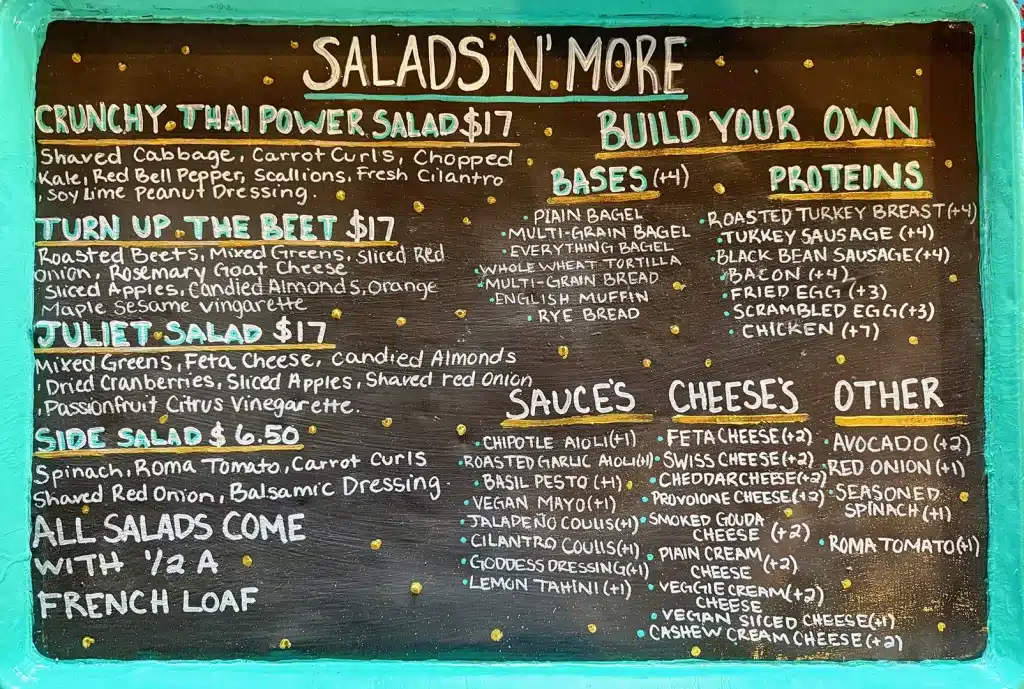 SALADS N' MORE
CRUNCHY THAI POWER SALAD $17
Shaved Cabbage, Carrot Curls, Chopped
Kale, Red Bell Pepper, Scallions, Fresh Cilantro
, Soy Lime Peanut Dressing.
TURN UP THE BEET $17
Roasted Beets, Mixed Greens, Sliced Red
Onion, Rosemary Goat Cheese
Sliced Apples, Candied Almonds, Orange
Maple Sesame Vingarette
JULIET SALAD $17
Mixed Greens, Feta Cheese, Candied Almonds
, Dried Cranberries, Sliced Apples, Shaved red Onion
, Passionfruit Citrus Vinegarette.
SIDE SALAD $6.50
Spinach, Roma Tomato, Carrot Curls
Shaved Red Onion, Balsamic Dressing.
ALL SALADS COME
WITH 1/2 A
FRENCH LOAF
BUILD YOUR OWN
BASES (+4)
• PLAIN BAGEL
• MULTI-GRAIN BAGEL
• EVERYTHING BAGEL
• WHOLE WHEAT TORTILLA
• MULTI-GRAIN BREAD
• ENGLISH MUFFIN
• RYE BREAD
PROTEINS
• ROASTED TURKEY BREAST (+4)
• TURKEY SAUSAGE (+4)
• BLACK BEAN SAUSAGE (+4)
• BACON (+4)
• FRIED EGG (+3)
• SCRAMBLED EGG (+3)
• CHICKEN (+7)
SAUCE'S
• CHIPOTLE AIOLI (+1)
• ROASTED GARLIC AIOLI (+1)
• BASIL PESTO (+1)
• VEGAN MAYO (+1)
• JALAPEÑO COULIS (+1)
• CILANTRO COULIS (+1)
• GODDESS DRESSING (+1)
• LEMON TAHINI (+1)
CHEESE'S
• FETA CHEESE (+2)
• SWISS CHEESE (+2)
• CHEDDAR CHEESE (+2)
• PROVOLONE CHEESE (+2)
• SMOKED GOUDA
CHEESE (+2)
• PLAIN CREAM
CHEESE (+2)
• VEGGIE CREAM (+2)
CHEESE
• VEGAN SLICED CHEESE (+1)
• CASHEW CREAM CHEESE (+2)
OTHER
• AVOCADO (+2)
• RED ONION (+1)
• SEASONED
SPINACH (+1)
• ROMA TOMATO (+1)